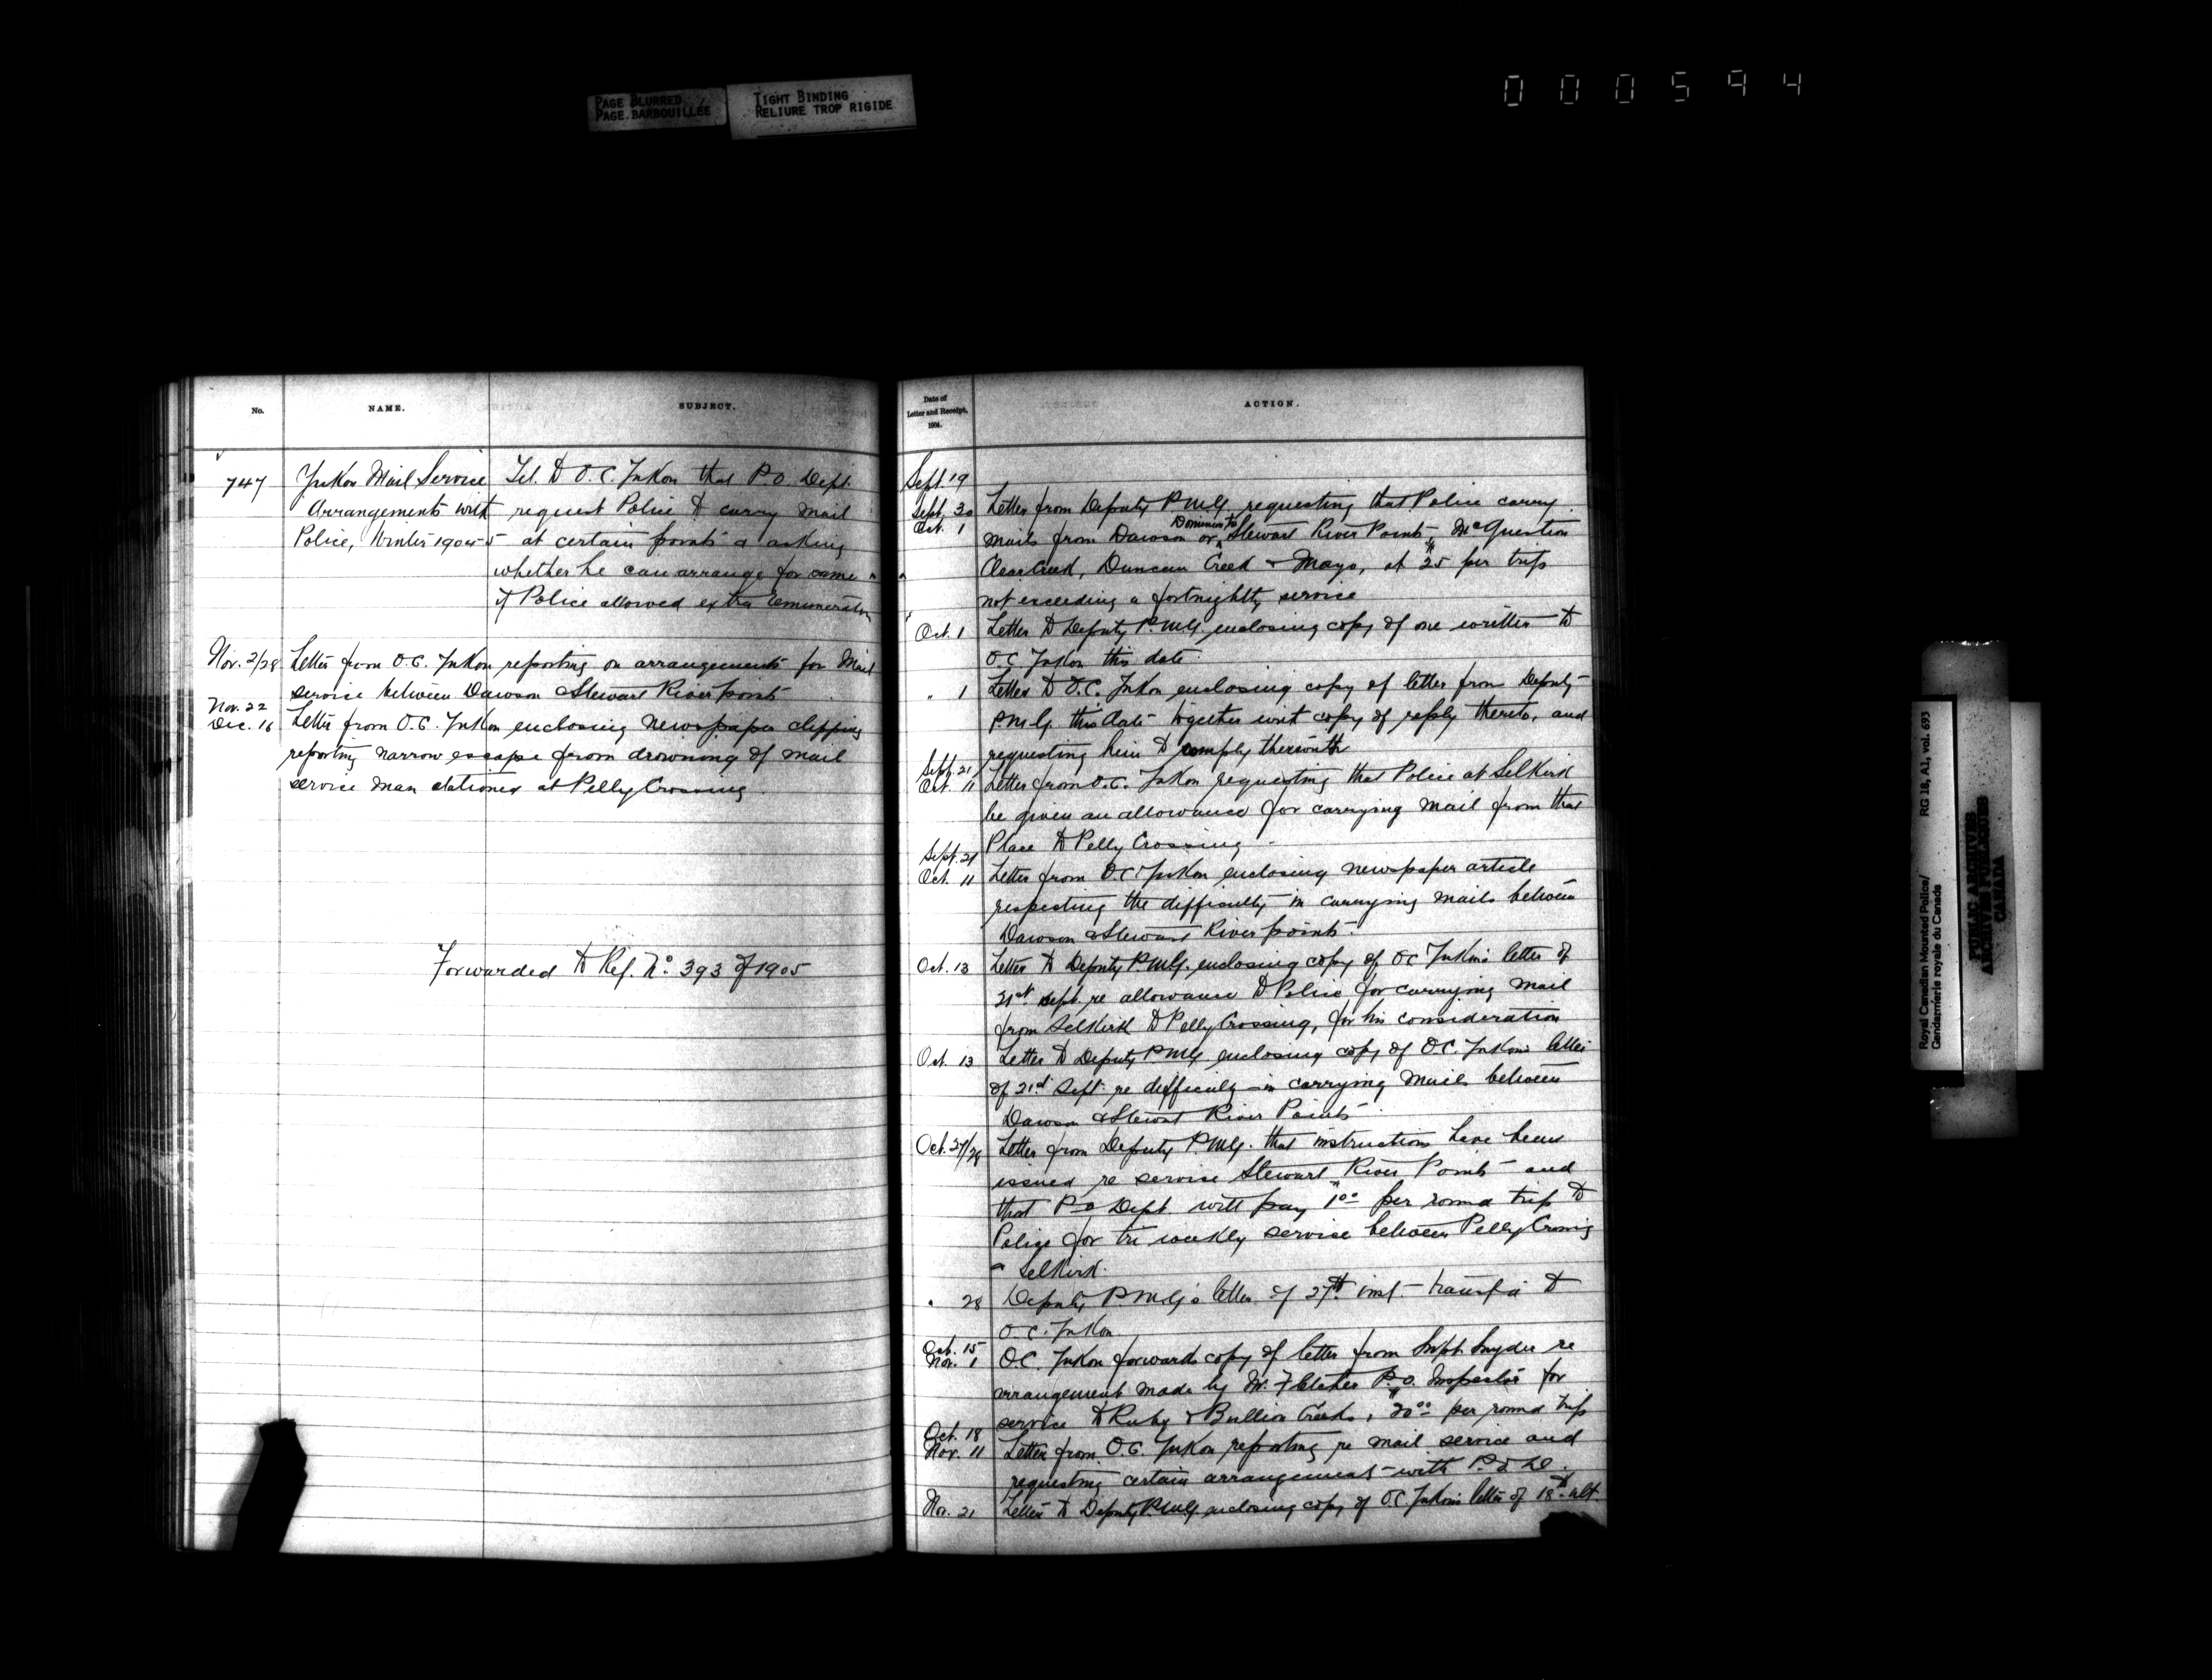 PAGE BLURRED
PAGE BARBOUILLÉE
TIGHT BINDING
RELIURE TROP RIGIDE
000594
No.
NAME.
SUBJECT.
747
Yukon Mail Service
Arrangements with
Police, Winter 1904-5
Tel. to O.C. Yukon that P.O. Dept.
request Police to carry mail
at certain points & asking
whether he can arrange for same
if Police allowed extra remuneration
Nov. 2/28 Letter from O.C. Yukon reporting on arrangements for Mail
service between Dawson & Stewart River points
Nov. 22
Dec. 16 Letter from O.C. Yukon enclosing newspaper clipping
reporting narrow escape from drowning of mail
service man stationed at Pelly Crossing.
Forwarded to Ref. No. 393 of 1905
Date of
Letter and Receipt,
1904.
ACTION.
Sept. 19
Sept. 30 Letter from Deputy P.M.G. requesting that Police carry
Oct. 1 mails from Dawson or Dominion to Stewart River Points, McQuestion
Clear Creek, Duncan Creek & Mayo, at $25 per trip
not exceeding a fortnightly service
Oct. 1 Letter to Deputy P.M.G. enclosing copy of one written to
O.C. Yukon this date.
" 1 Letter to O.C. Yukon enclosing copy of letter from Deputy
P.M.G. this date together with copy of reply thereto, and
requesting him to comply therewith
Sept. 21
Oct. 11 Letter from O.C. Yukon requesting that Police at Selkirk
be given an allowance for carrying mail from that
Place to Pelly Crossing.
Sept. 21
Oct. 11 Letter from O.C. Yukon enclosing newspaper article
respecting the difficulty in carrying mails between
Dawson & Stewart River points.
Oct. 13 Letter to Deputy P.M.G. enclosing copy of OC Yukon's letter of
21st Sept. re allowance to Police for carrying mail
from Selkirk to Pelly Crossing, for his consideration
Oct. 13 Letter to Deputy P.M.G. enclosing copy of O.C. Yukon's letter
of 21st Sept. re difficulty in carrying mails between
Dawson & Stewart River Points.
Oct. 27/28 Letter from Deputy P.M.G. that instructions have been
issued re service Stewart River Points and
that P.O. Dept. will pay $1.00 per round trip to
Police for tri weekly service between Pelly Crossing
& Selkirk.
" 28 Deputy P.M.G's letter of 27th inst. transfd to
O.C. Yukon
Oct. 15
Nov. 1 O.C. Yukon forwards copy of letter from Supt. Snyder re
arrangement made by Mr. Fletcher P.O. Inspector for
service to Ruby & Bullion Creeks, $20.00 per round trip
Oct. 18
Nov. 11 Letter from O.C. Yukon reporting re mail service and
requesting certain arrangements with P.O.D.
Nov. 21 Letter to Deputy P.M.G. enclosing copy of O.C. Yukon's letter of 18th ult.
Royal Canadian Mounted Police/ RG 18, A1, vol. 693
Gendarmerie royale du Canada
PUBLIC ARCHIVES
ARCHIVES PUBLIQUES
CANADA